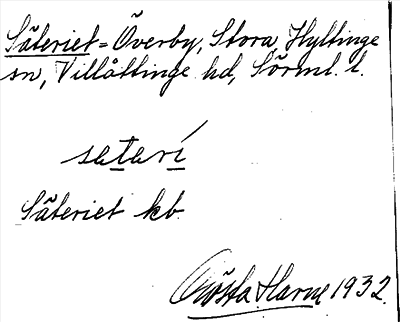 Säteriet = Överby, Stora, Hyltinge
sn, Villåttinge hd, Sörml. l.
sətərí
Säteriet kb.
Gösta Harne 1932.